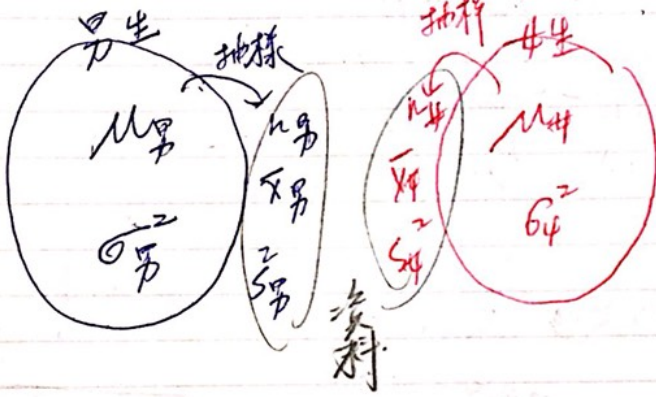 男生
抽樣
μ男
σ²男
n男
x̄男
s²男
抽样
女生
n女
x̄女
s²女
μ女
σ²女
资料